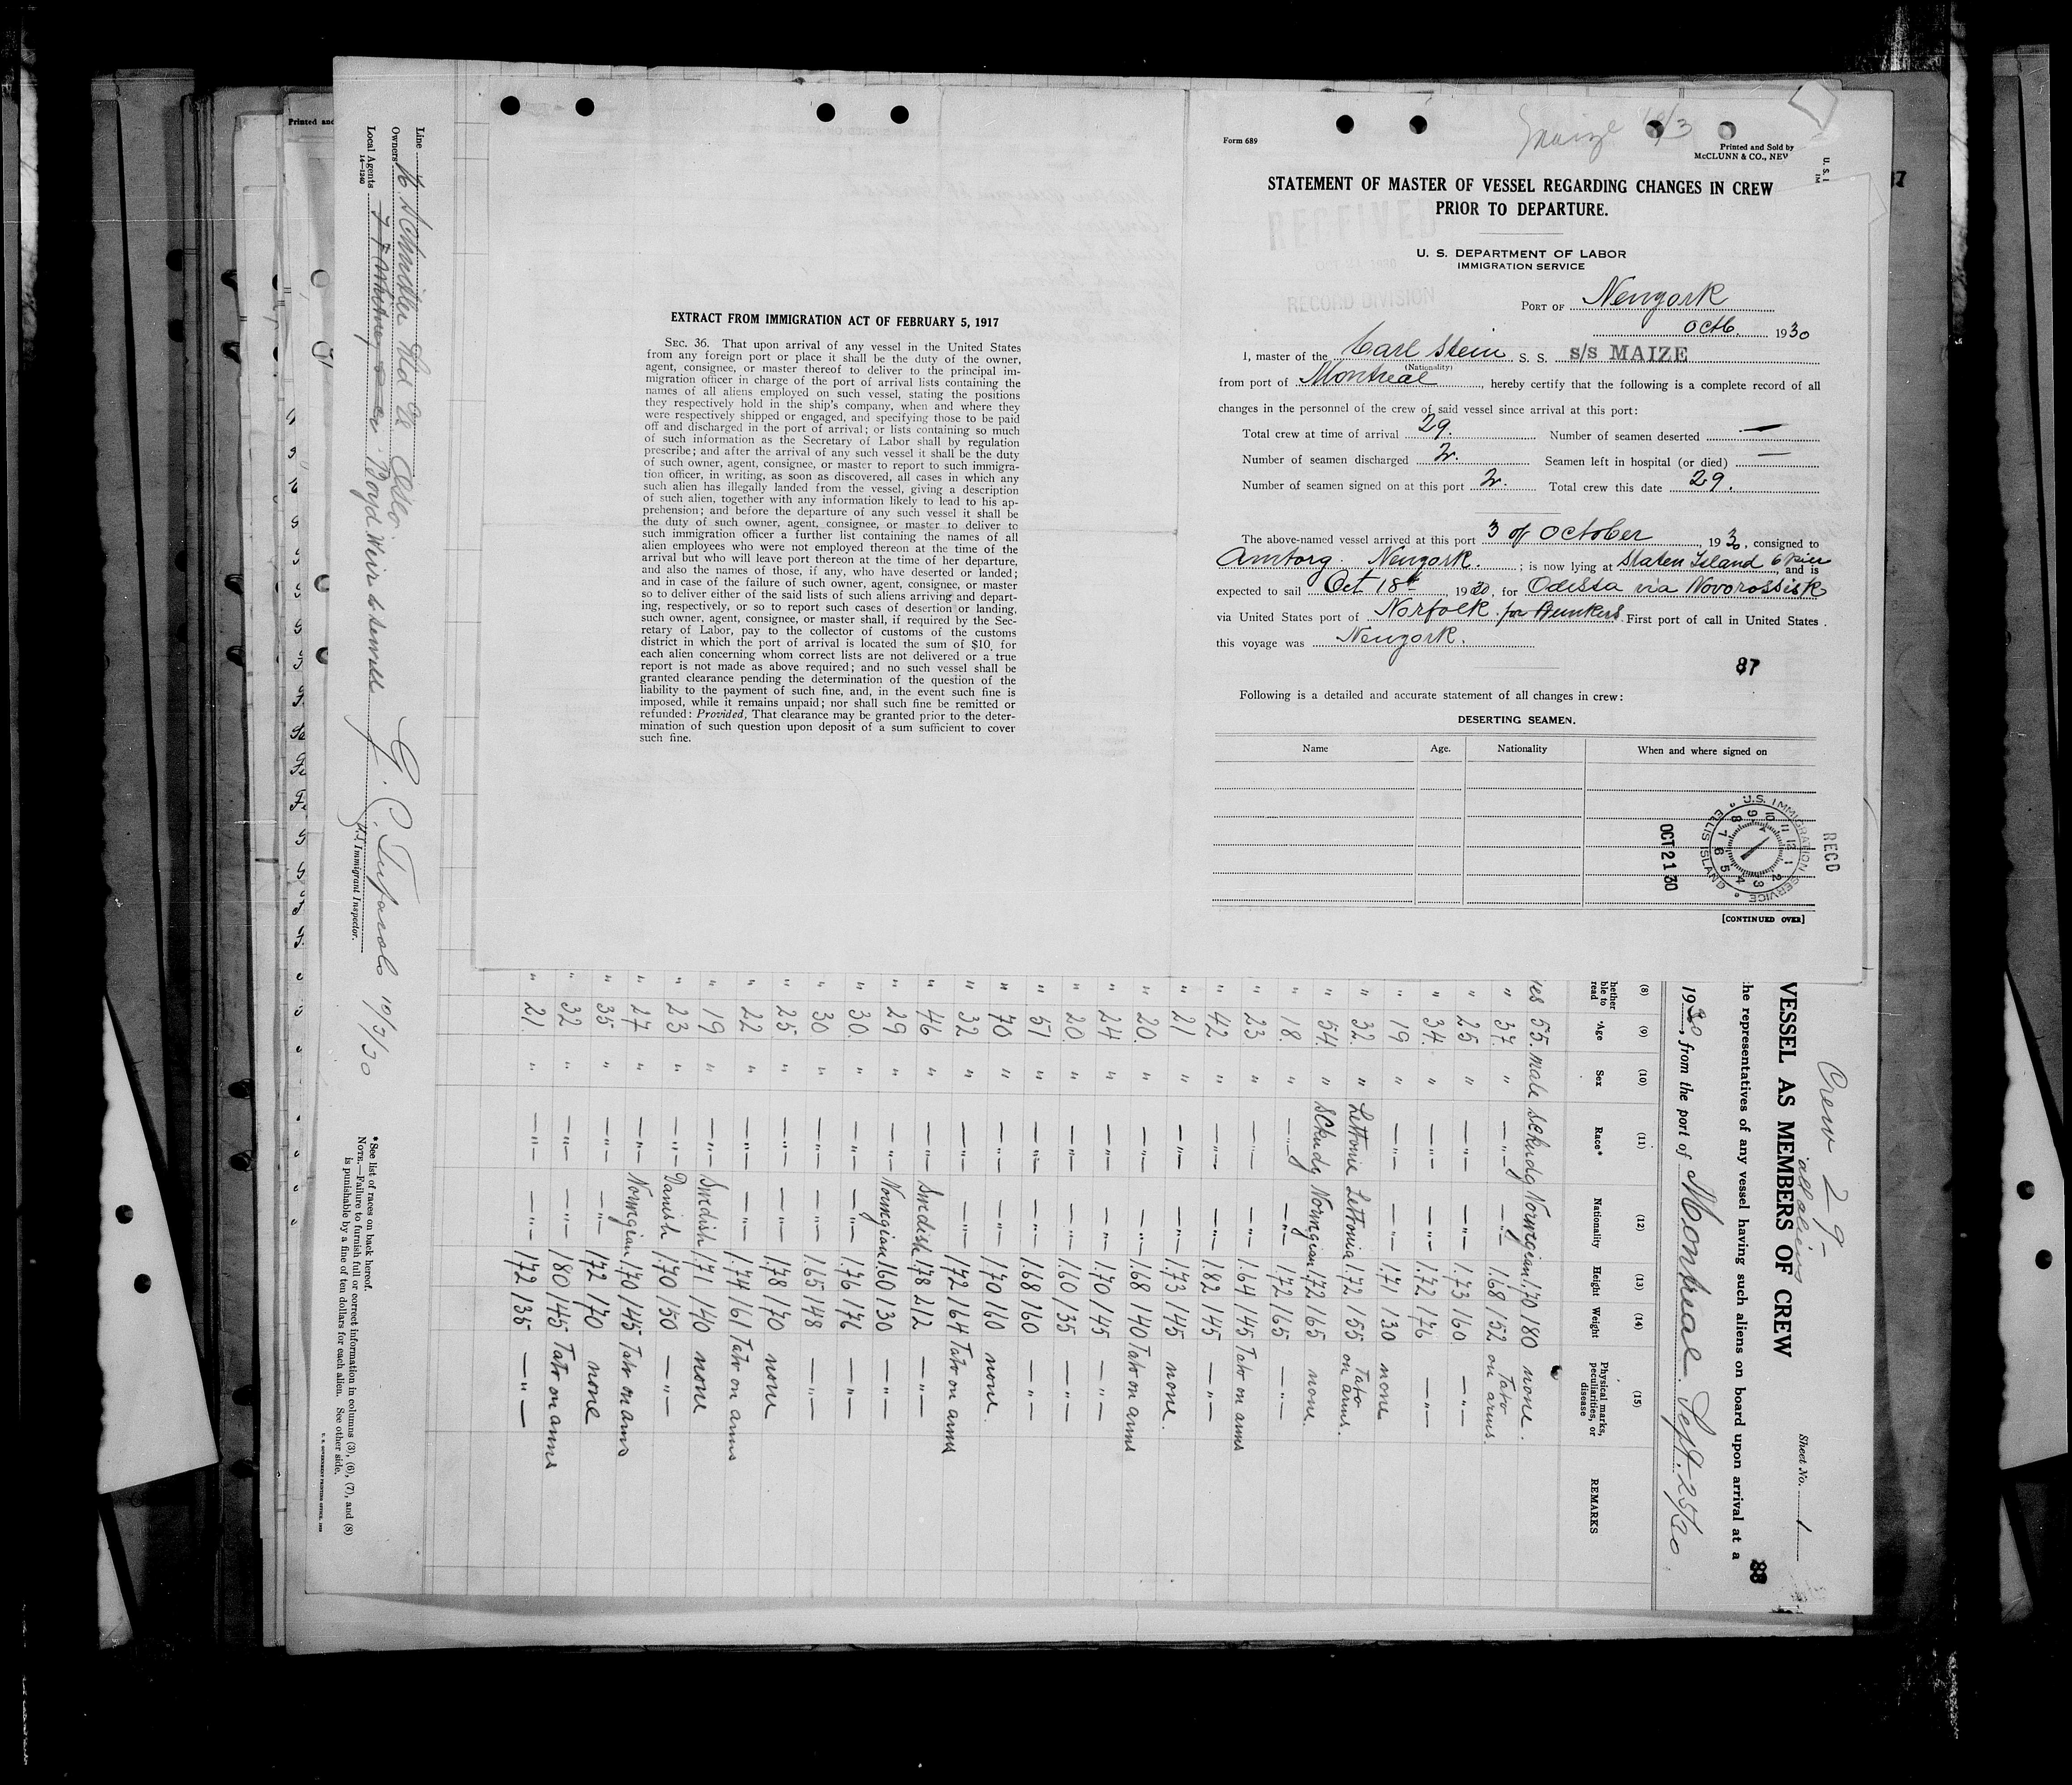 Form 689
Maize
Printed and Sold by
McCLUNN & CO., NEW
STATEMENT OF MASTER OF VESSEL REGARDING CHANGES IN CREW
PRIOR TO DEPARTURE.
RECEIVED
RECORD DIVISION
U. S. DEPARTMENT OF LABOR
IMMIGRATION SERVICE
PORT OF Newyork
octb. 1930
I, master of the Carl Stein S. S. S/S MAIZE
(Nationality)
from port of Montreal, hereby certify that the following is a complete record of all
changes in the personnel of the crew of said vessel since arrival at this port:
Total crew at time of arrival 29. Number of seamen deserted —
Number of seamen discharged 2. Seamen left in hospital (or died) —
Number of seamen signed on at this port 2. Total crew this date 29.
The above-named vessel arrived at this port 3 of October, 1930, consigned to
Amtorg Newyork. ; is now lying at Staten Island 6 pier, and is
expected to sail Oct 18th, 1930, for Odessa via Novorossisk
via United States port of Norfolk for Bunkers. First port of call in United States
this voyage was Newyork.
87
Following is a detailed and accurate statement of all changes in crew:
DESERTING SEAMEN.
Name Age. Nationality When and where signed on
U.S. IMMIGRATION SERVICE
ELLIS ISLAND
RECD
OCT 21 30
[CONTINUED OVER]
EXTRACT FROM IMMIGRATION ACT OF FEBRUARY 5, 1917
SEC. 36. That upon arrival of any vessel in the United States
from any foreign port or place it shall be the duty of the owner,
agent, consignee, or master thereof to deliver to the principal im-
migration officer in charge of the port of arrival lists containing the
names of all aliens employed on such vessel, stating the positions
they respectively hold in the ship's company, when and where they
were respectively shipped or engaged, and specifying those to be paid
off and discharged in the port of arrival; or lists containing so much
of such information as the Secretary of Labor shall by regulation
prescribe; and after the arrival of any such vessel it shall be the duty
of such owner, agent, consignee, or master to report to such immigra-
tion officer, in writing, as soon as discovered, all cases in which any
such alien has illegally landed from the vessel, giving a description
of such alien, together with any information likely to lead to his ap-
prehension; and before the departure of any such vessel it shall be
the duty of such owner, agent, consignee, or master to deliver to
such immigration officer a further list containing the names of all
alien employees who were not employed thereon at the time of the
arrival but who will leave port thereon at the time of her departure,
and also the names of those, if any, who have deserted or landed;
and in case of the failure of such owner, agent, consignee, or master
so to deliver either of the said lists of such aliens arriving and depart-
ing, respectively, or so to report such cases of desertion or landing,
such owner, agent, consignee, or master, shall, if required by the Sec-
retary of Labor, pay to the collector of customs of the customs
district in which the port of arrival is located the sum of $10 for
each alien concerning whom correct lists are not delivered or a true
report is not made as above required; and no such vessel shall be
granted clearance pending the determination of the question of the
liability to the payment of such fine, and, in the event such fine is
imposed, while it remains unpaid; nor shall such fine be remitted or
refunded: Provided, That clearance may be granted prior to the deter-
mination of such question upon deposit of a sum sufficient to cover
such fine.
Crew 29
all aliens
Sheet No. 1
88
VESSEL AS MEMBERS OF CREW
he representatives of any vessel having such aliens on board upon arrival at a
1930, from the port of Montreal. Sept. 25/30
(8) (9) (10) (11) (12) (13) (14) (15)
hether ble to read Age Sex Race* Nationality Height Weight Physical marks, peculiarities, or disease REMARKS
yes 55. male Schandy Norwegian 1.70 180 none.
" 37. " —"— —"— 1.68 152 Tato on arms.
" 25 " —"— —"— 1.73 160 —"—
" 34. " —"— —"— 1.72 176 —"—
" 19 " —"— —"— 1.71 130 none
" 32. " Lettonie Lettonia 1.72 155 Tato on arms.
" 54. " Schandy Norwegian 1.72 165 none.
" 18. " —"— —"— 1.72 165 —"—
" 23 " —"— —"— 1.64 145 Tato on arms
" 42 " —"— —"— 1.82 145 —"—
" 21 " —"— —"— 1.73 145 none.
" 20. " —"— —"— 1.68 140 Tato on arms
" 24 " —"— —"— 1.70 145 —"—
" 20. " —"— —"— 1.60 135 —"—
" 51 " —"— —"— 1.68 160 —"—
" 70 " —"— —"— 1.70 160 none.
" 32 " —"— —"— 1.72 164 Tato on arms
" 46 " —"— Swedish 178 212 —"—
" 29 " —"— Norwegian 1.60 130 —"—
" 30. " —"— —"— 1.76 176 —"—
" 30 " —"— —"— 1.65 148 —"—
" 25 " —"— —"— 1.78 170 none
" 22 " —"— —"— 1.74 161 Tato on arms
" 19 " —"— Swedish 1.71 140 none
" 23 " —"— Danish 170 150 —"—
" 27 " —"— Norwegian 1.70 145 Tato on arms
" 35 " —"— —"— 172 170 none
" 32 " —"— —"— 180 145 Tato on arms
" 21 " —"— —"— 172 135 —"—
Line
Owners
Local Agents Boyd Weir & Sewell
14—1240
10/3/30
U.S. Immigrant Inspector.
* See list of races on back hereof.
NOTE.—Failure to furnish full or correct information in columns (3), (6), (7), and (8)
is punishable by a fine of ten dollars for each alien. See other side.
U. S. GOVERNMENT PRINTING OFFICE
Printed and